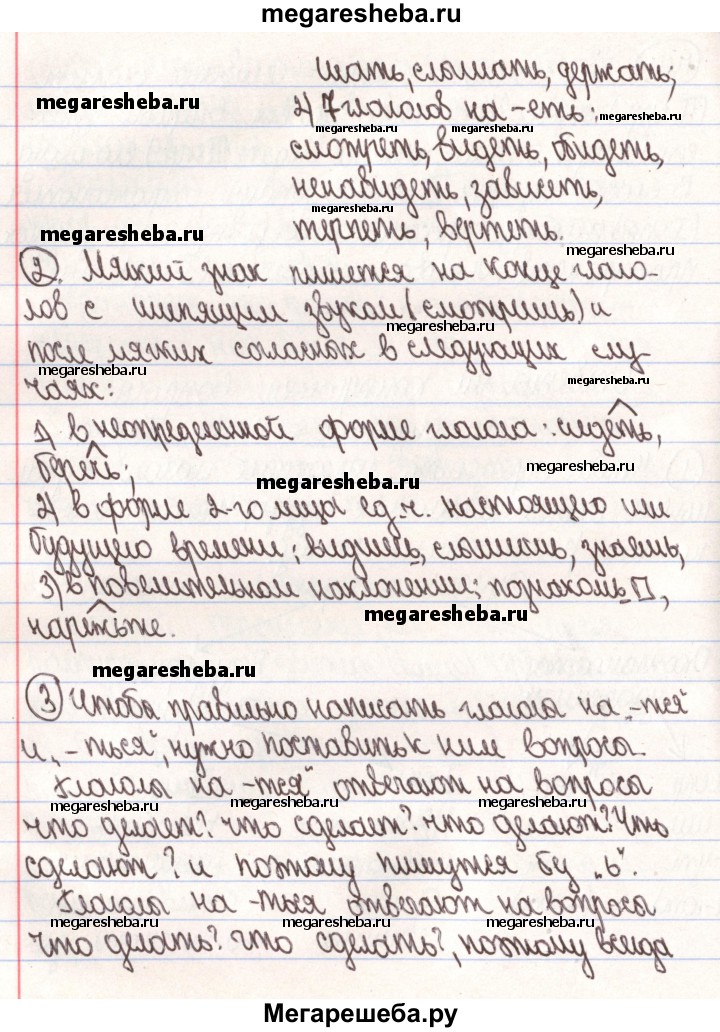 megaresheba.ru
шать, слышать, держать;
2) 7 глаголов на -еть:
megaresheba.ru
megaresheba.ru
megaresheba.ru
смотреть, видеть, обидеть,
megaresheba.ru
ненавидеть, зависеть,
megaresheba.ru
терпеть, вертеть.
megaresheba.ru
megaresheba.ru
2. Мягкий знак пишется на конце глаго-
лов с шипящим звуком (смотришь) и
megaresheba.ru
после мягких согласных в следующих слу-
megaresheba.ru
чаях:
megaresheba.ru
1) в неопределенной форме глагола: сидеть,
megaresheba.ru
беречь;
megaresheba.ru
2) в форме 2-го лица ед.ч. настоящего или
будущего времени: видишь, слышишь, знаешь,
3) в повелительном наклонении: познакомь,
megaresheba.ru
нарежьте.
megaresheba.ru
3 Чтобы правильно написать глагол на „-тся"
и „-ться" нужно поставить к ним вопросы.
Глаголы на -тся" отвечают на вопросы
megaresheba.ru
megaresheba.ru
megaresheba.ru
что делает? что сделает? что делают? Что
сделают? и поэтому пишутся без „ь".
Глаголы на -ться отвечают на вопросы
megaresheba.ru
megaresheba.ru
megaresheba.ru
что делать? что сделать?, поэтому всегда
Мегарешеба.ру